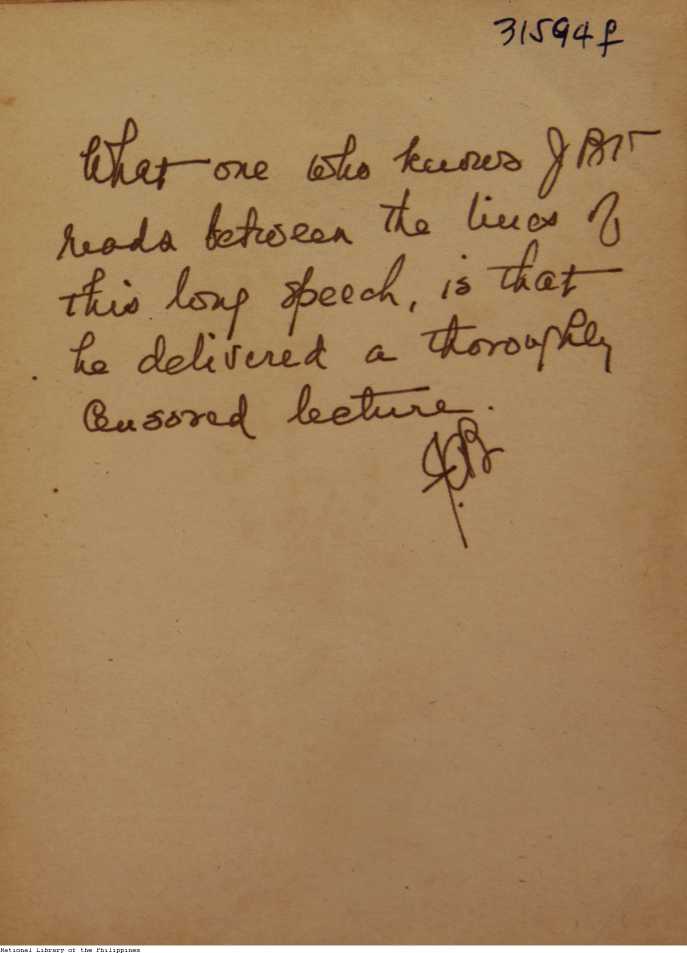 31594f
What one who knows J
reads between the lines of
this long speech, is that
he delivered a thoroughly
Censored lecture.
National Library of the Philippines